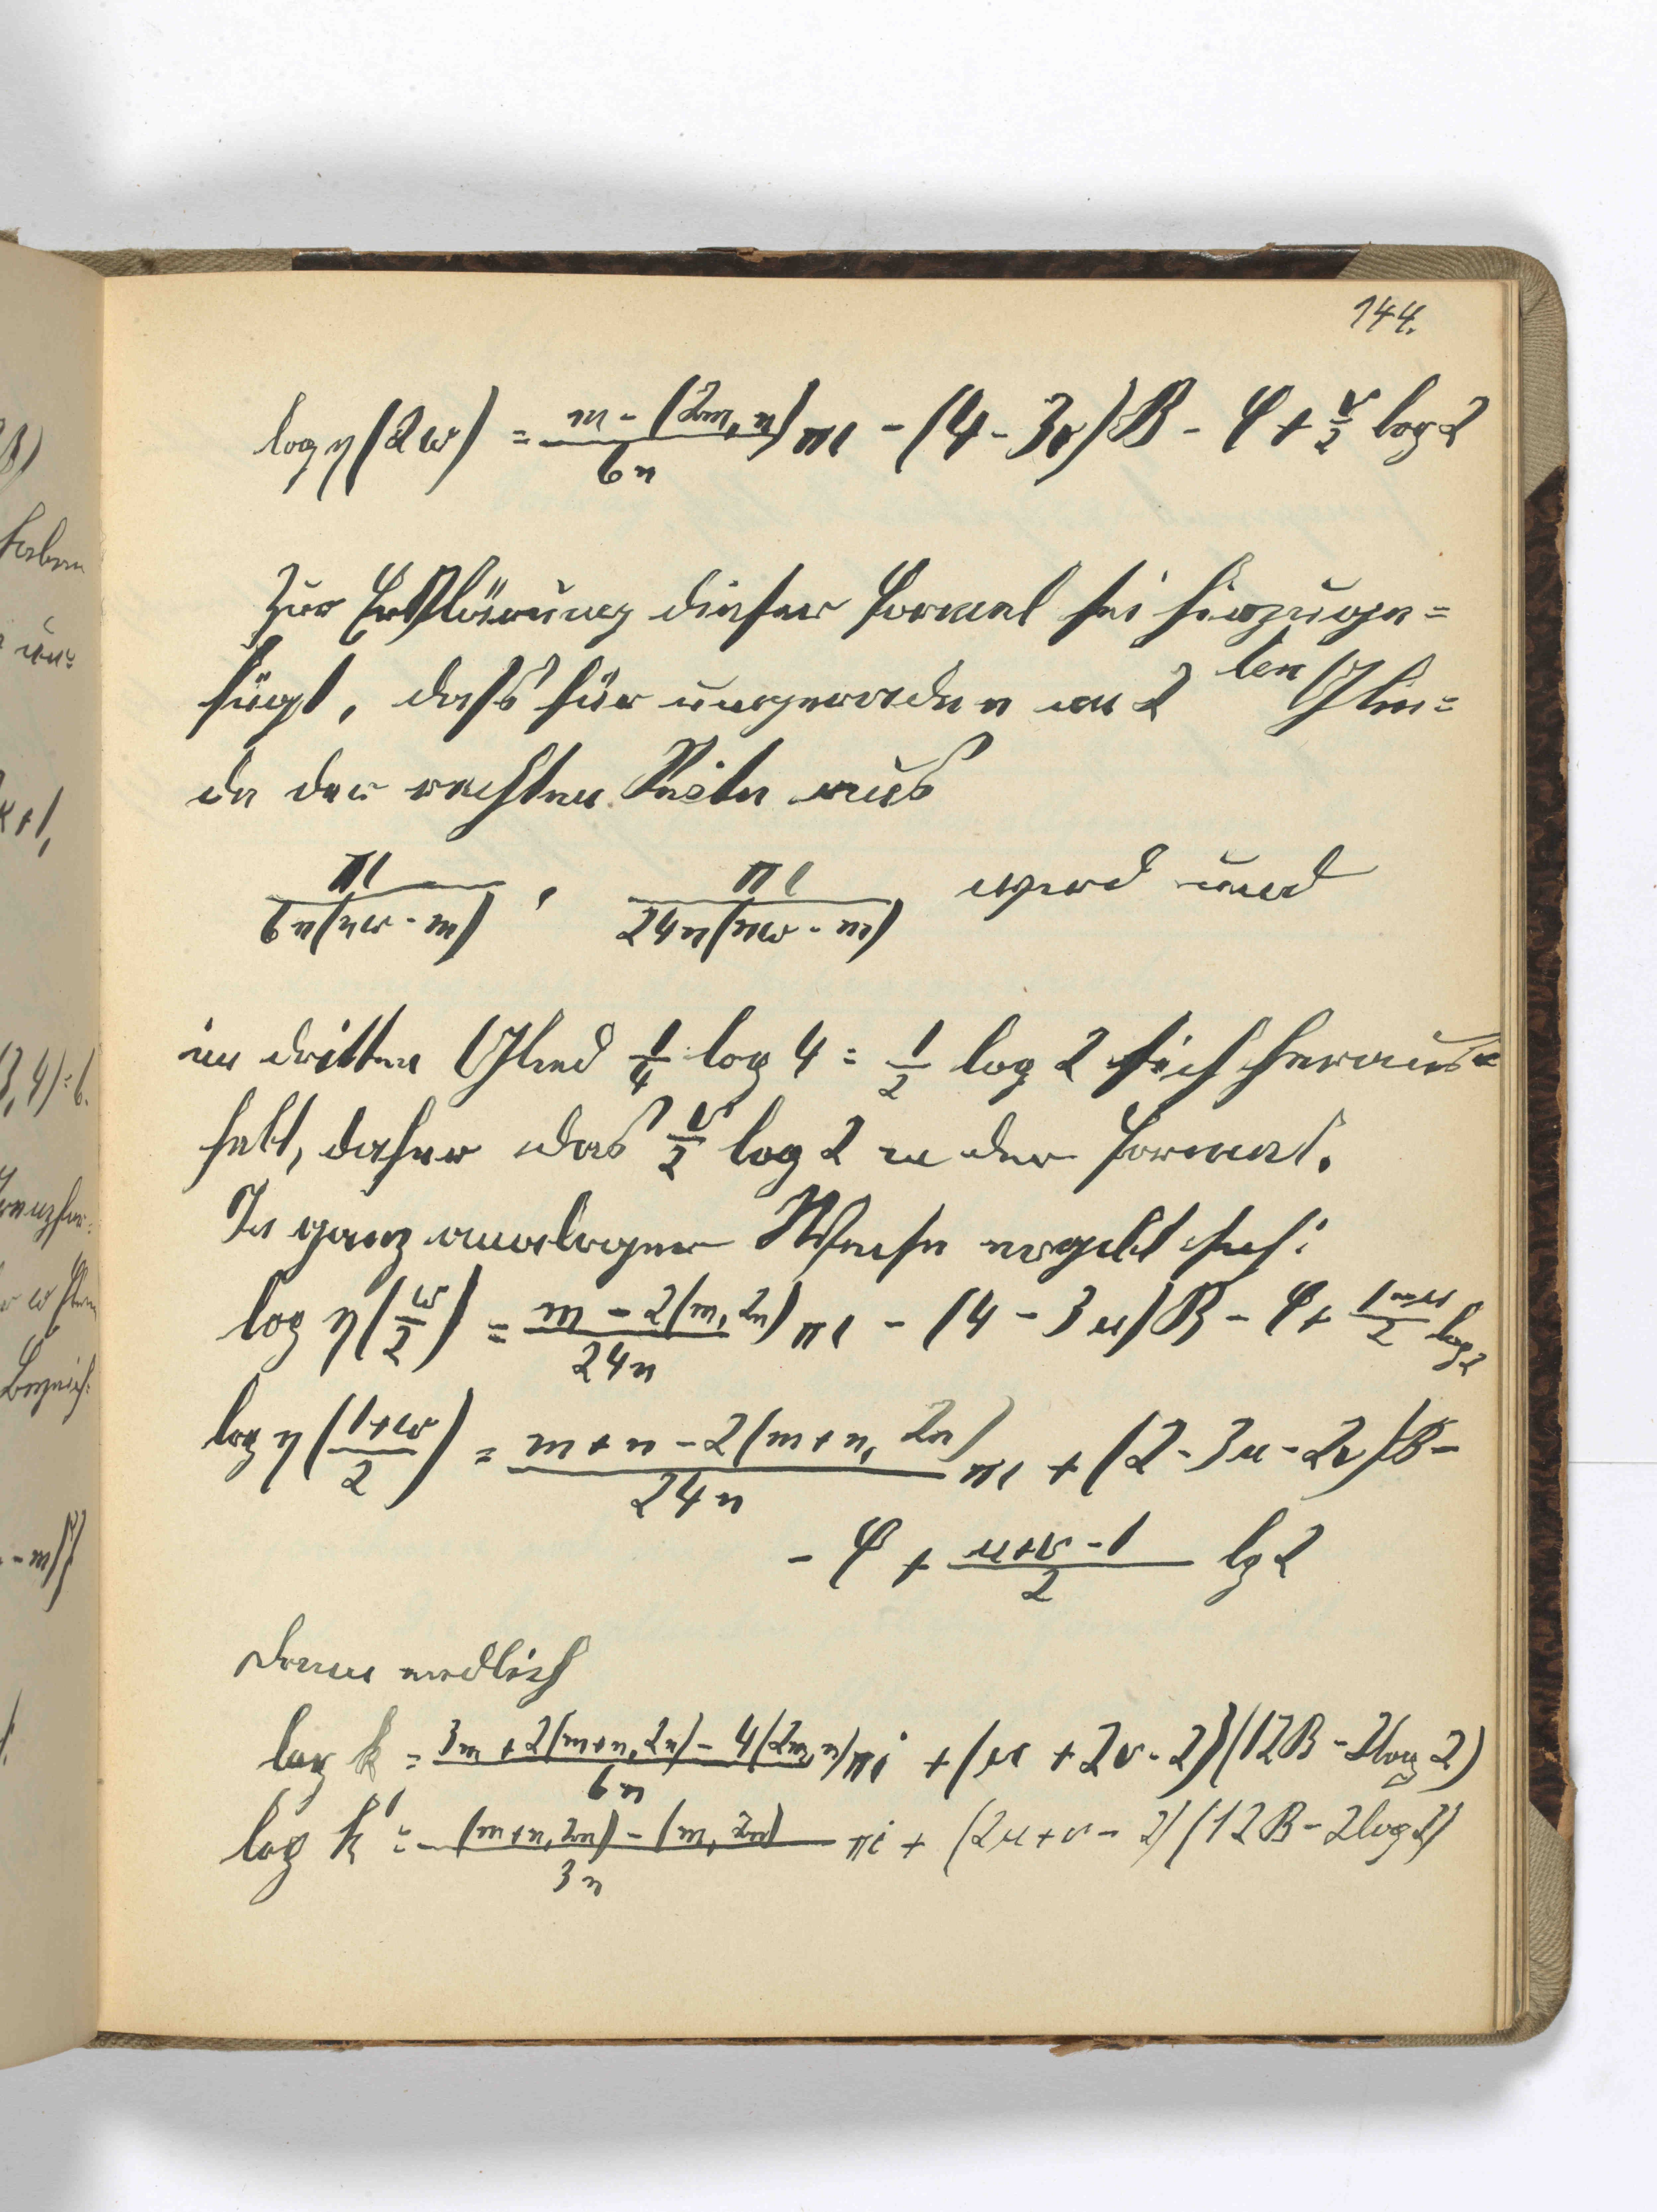 144.
log η(2ω) = (m - (2m, n))/(6n) πi - (4 - 3v)B - φ + v/2 log 2
Zur Erklärung dieser Formel sei hinzuge=
fügt, daß für ungerade n im 2ten Glie=
de der rechten Seite aus
πi/(6n(nω - m)), πi/(24n(nω - m)) wird und
im dritten Glied 1/4 log 4 = 1/2 log 2 sich heraus=
hebt, daher das v/2 log 2 in der Formel.
In ganz analoger Weise ergibt sich:
log η(ω/2) = (m - 2(m, 2n))/(24n) πi - (4 - 3u)B - φ + (1-u)/2 log 2
log η((1+ω)/2) = (m + n - 2(m+n, 2n))/(24n) πi + (2 - 3u - 2v)B -
- φ + (u+v-1)/2 lg 2
dann endlich
log k = (3m + 2(m+n, 2n) - 4(2m, n))/(6n) πi + (u + 2v - 2)(12B - 2log 2)
log k' = ((m+n, 2n) - (m, 2n))/(3n) πi + (2u + v - 2)(12B - 2log 2)